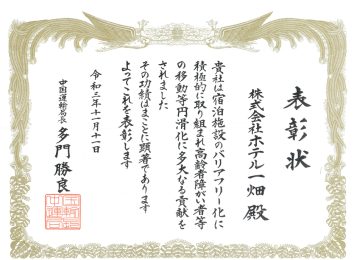 表彰状
株式会社ホテル一畑 殿
貴社は宿泊施設のバリアフリー化に
積極的に取り組まれ高齢者障がい者等
の移動等円滑化に多大なる貢献を
されました
その功績はまことに顕著であります
よってこれを表彰します
令和三年十一月十一日
中国運輸局長 多門勝良